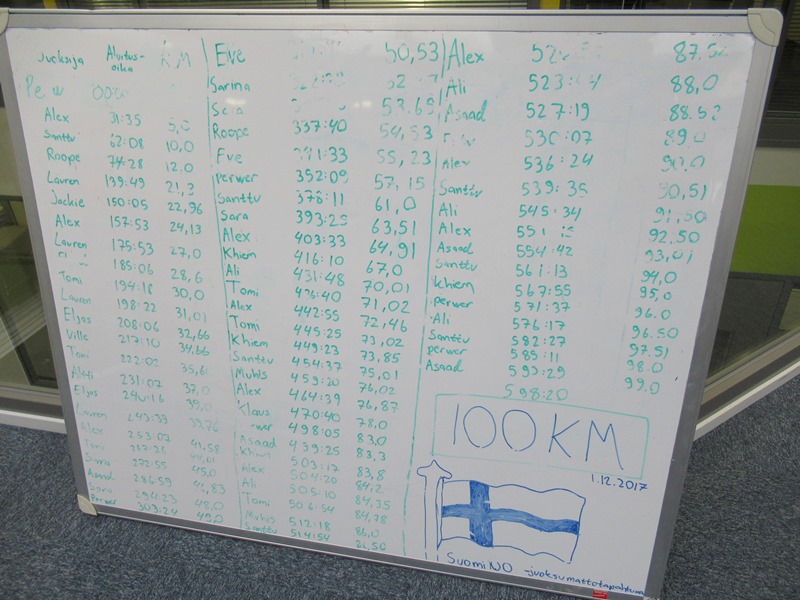 Juoksija Aloitus-aika KM
Alex 31:35 5,0
Santtu 62:08 10,0
Roope 74:28 12.0
Lauren 139:49 21,3
Jackie 150:05 22,96
Alex 157:53 24,13
Lauren 175:53 27,0
185:06 28,6
Tomi 194:16 30,0
Lauren 198:22 31,01
Eljas 208:06 32,66
Ville 217:10 34,66
Tomi 222:02 35,6
231:07 37,0
Eljas 39,0
Lauren 243:39 39,76
Alex 253:07 41,58
Tomi
272:55 45,0
Asaad 286:59 46,83
Sara 294:23 48,0
Perwer 303:24 49,0
Eve 50,53
Sarina
Roope 337:40 54,53
Eve 55,23
Perwer 352:09 57,15
Santtu 378:11 61,0
Sara 393:25 63,51
Alex 403:33 64,91
Khiem 416:10 67,0
Ali 431:48 70,01
Tomi 436:40 71,02
Alex 442:55 72,46
Tomi 445:25 73,02
Khiem 449:23 73,85
Santtu 454:37 75,01
Muhis 459:20 76,02
Alex 464:39 76,87
Klaus 470:40 78,0
498:05 83,0
Asaad 439:25 83,3
Khiem 503:17 83,8
Alex 504:20 84,2
Ali 505:10 84,35
Tomi 506:54 84,78
Muhis 512:18 86,0
Santtu 514:54 86,50
Alex
Ali 88,0
Asaad 527:19 88.52
530:07 89.0
Alex 536:24 90,0
Santtu 539:35 90,51
Ali 545:34 91,50
Alex 92.50
Asaad 554:42 93,01
Santtu 561:13 94,0
Khiem 567:55 95,0
Perwer 571:37 96.0
Ali 576:17 96.50
Santtu 582:27 97.51
Perwer 585:11 98.0
Asaad 593:29 99.0
598:20
100KM
1.12.2017
SuomiNO -juoksumattotapahtuma